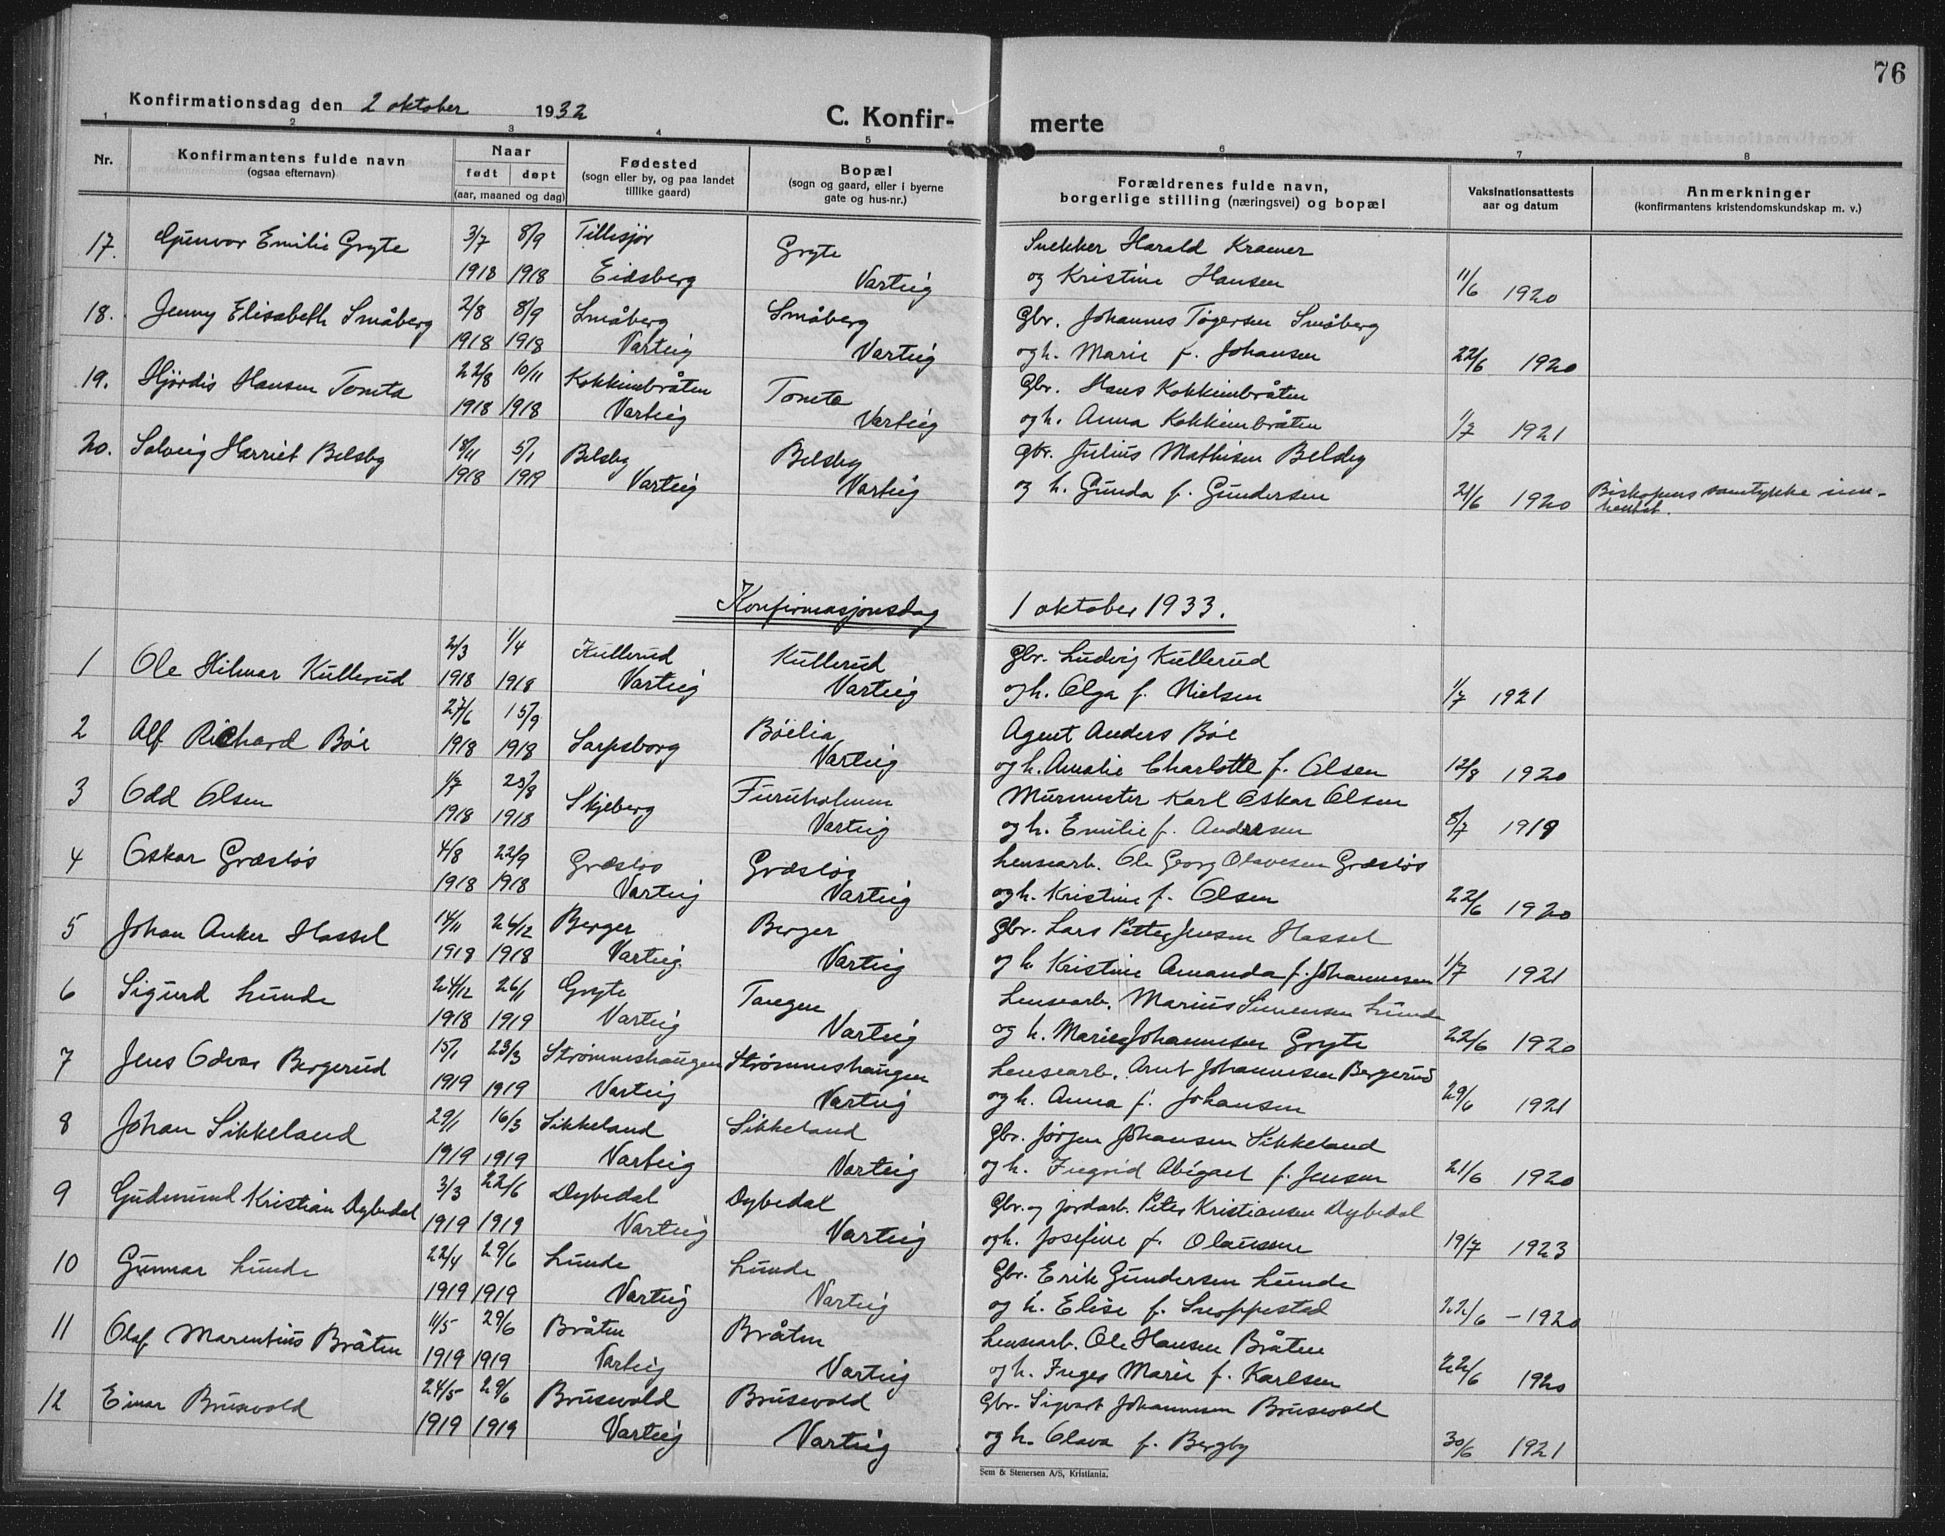 76
Konfirmationsdag den 2 oktober 1932
C. Konfir- merte
1 2 3 4 5 6 7 8
Nr. Konfirmantens fulde navn (ogsaa efternavn) Naar født døpt (aar, maaned og dag) Fødested (sogn eller by, og paa landet tillike gaard) Bopæl (sogn og gaard, eller i byerne gate og hus-nr.) Forældrenes fulde navn, borgerlige stilling (næringsvei) og bopæl Vaksinationsattests aar og datum Anmerkninger (konfirmantens kristendomskundskap m. v.)
17. Gunvor Emilie Gryte 3/7 8/9 Tillisjør Gryte Snekker Harald Kramer
1918 1918 Eidsberg Varteig og Kristine Hansen 11/6 1920
18. Jenny Elisabeth Småberg 2/8 8/9 Småberg Småberg Gbr. Johannes Tøgersen Småberg
1918 1918 Varteig Varteig og h. Marie f. Johansen 22/6 1920
19. Hjørdis Hansen Tomta 22/8 10/11 Kokkimbråten Tomta Gbr. Hans Kokkimbråten
1918 1918 Varteig Varteig og h. Anna Kokkimbråten 1/7 1921
20. Solveig Harriet Belsby 18/11 5/1 Belsby Belsby gbr. Julius Mathisen Belsby
1918 1919 Varteig Varteig og h. Gunda f. Gundersen 21/6 1920 Biskopens samtykke inn-
hentet.
Konfirmasjonsdag 1 oktober 1933.
1 Ole Hilmar Kullerud 2/3 1/4 Kullerud Kullerud Gbr. Ludvig Kullerud
1918 1918 Varteig Varteig og h. Olga f. Nielsen 1/7 1921
2 Alf Richard Bøe 27/6 15/9 Bøelia Agent Anders Bøe
1918 1918 Sarpsborg Varteig og h. Amalie Charlotte f. Olsen 12/8 1920
3 Odd Olsen 1/7 25/8 Skjeberg Furuholmen Murmester Karl Oskar Olsen
1918 1918 Varteig og h. Emilie f. Andersen 8/7 1919
4 Oskar Græsløs 4/8 22/9 Græsløs Græsløs Lensearb. Ole Georg Olavesen Græsløs
1918 1918 Varteig Varteig og h. Kristine f. Olsen 22/6 1920
5 Johan Anker Hassel 14/11 26/12 Berger Berger Gbr. Lars Petter Jensen Hassel
1918 1918 Varteig Varteig og h. Kristine Amanda f. Johannesen 1/7 1921
6 Sigurd Lunde 24/12 26/1 Gryte Tangen Lensearb. Marius Simensen Lunde
1918 1919 Varteig Varteig og h. Marie Johannesen Gryte 22/6 1920
7 Jens Odvar Bergerud 15/1 23/3 Strømneshaugen Strømneshaugen Lensearb. Arnt Johannesen Bergerud
1919 1919 Varteig Varteig og h. Anna f. Johansen 29/6 1921
8 Johan Sikkeland 29/1 16/3 Sikkeland Sikkeland Gbr. Jørgen Johansen Sikkeland
1919 1919 Varteig Varteig og h. Ingrid Abigael f. Jensen 21/6 1920
9 Gudmund Kristian Dybedal 3/3 22/6 Dybedal Dybedal Gbr. og jordarb. Peter Kristiansen Dybedal
1919 1919 Varteig Varteig og h. Josefine f. Olausen 19/7 1923
10 Gunnar Lunde 22/4 29/6 Lunde Lunde Gbr. Erik Gundersen Lunde
1919 1919 Varteig Varteig og h. Elise f. Snoppestad 22/6 - 1920
11 Olaf Marentius Bråten 11/5 29/6 Bråten Bråten Lensearb. Ole Hansen Bråten
1919 1919 Varteig Varteig og h. Inger Marie f. Karlsen 22/6 1920
12 Einar Brusevold 24/5 29/6 Brusevold Brusevold Gbr. Sigvart Johannesen Brusevold
1919 1919 Varteig Varteig og h. Olava f. Bergby 30/6 1921
Sem & Stenersen A/S, Kristiania.